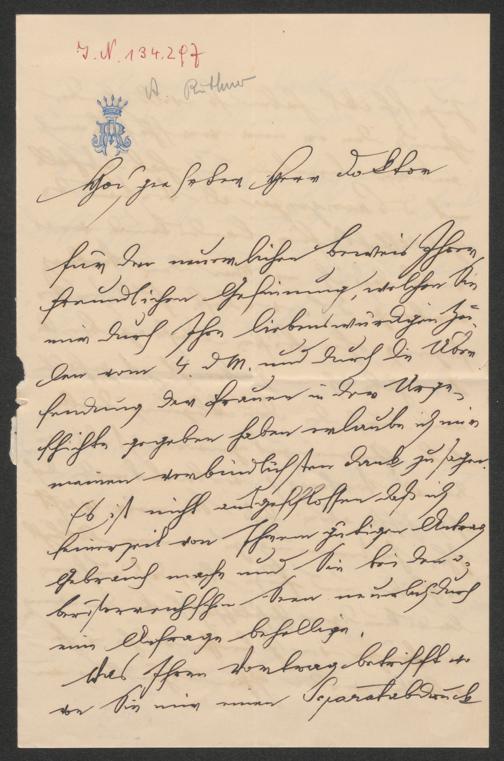 J. N. 134.297
A. Ruthner
AR
Hochgeehrter Herr Doktor
für den neuerlichen Beweis Ihrer
freundlichen Gesinnung, welchen Sie
mir durch Ihre liebenswürdigen Zei-
len vom 4. d M. und durch die Über
sendung der Frauen in der Urge-
schichte gegeben haben erlaube ich mir
meinen verbindlichsten Dank zu sagen.
Es ist nicht ausgeschlossen daß ich
seinerzeit von Ihrem gütigen Antrag
Gebrauch mache und Sie bei den o-
berösterreichischen Seen neuerlich durch
eine Anfrage behellige.
Was Ihren Vortrag betrifft so
Sie mir einen Separatabdruck